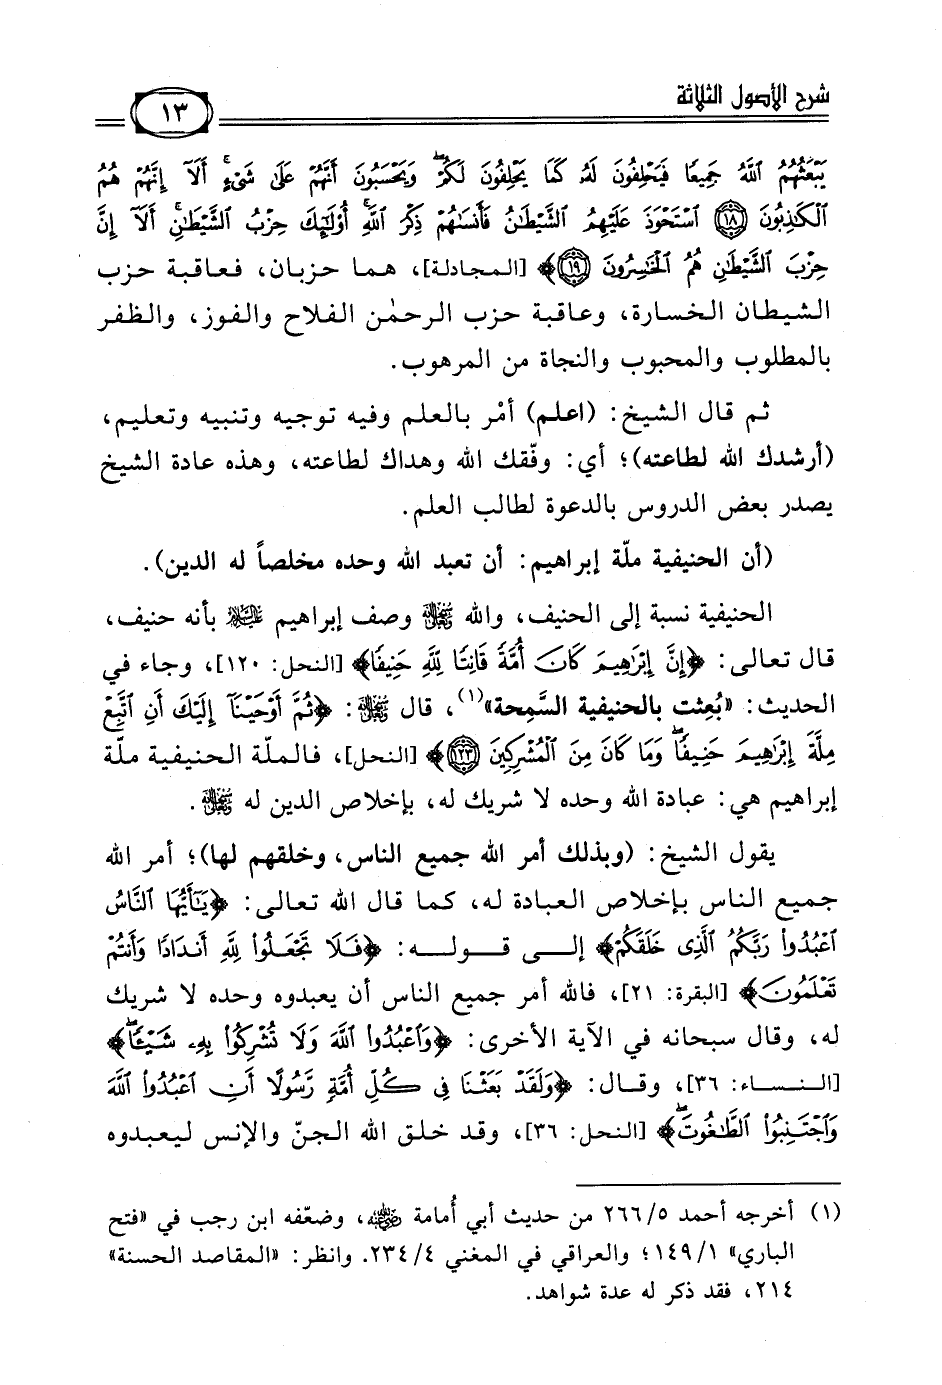 شرح الأصول الثلاثة
١٣
يَبْعَثُهُمُ ٱللَّهُ جَمِيعًا فَيَحْلِفُونَ لَهُۥ كَمَا يَحْلِفُونَ لَكُمْ ۖ وَيَحْسَبُونَ أَنَّهُمْ عَلَىٰ شَىْءٍ ۚ أَلَآ إِنَّهُمْ هُمُ
ٱلْكَـٰذِبُونَ ﴿١٨﴾ ٱسْتَحْوَذَ عَلَيْهِمُ ٱلشَّيْطَـٰنُ فَأَنسَىٰهُمْ ذِكْرَ ٱللَّهِ ۚ أُو۟لَـٰٓئِكَ حِزْبُ ٱلشَّيْطَـٰنِ ۚ أَلَآ إِنَّ
حِزْبَ ٱلشَّيْطَـٰنِ هُمُ ٱلْخَـٰسِرُونَ ﴿١٩﴾﴾ [المجادلة]، هما حزبان، فعاقبة حزب
الشيطان الخسارة، وعاقبة حزب الرحمٰن الفلاح والفوز، والظفر
بالمطلوب والمحبوب والنجاة من المرهوب.
ثم قال الشيخ: (اعلم) أمْر بالعلم وفيه توجيه وتنبيه وتعليم،
(أرشدك الله لطاعته)؛ أي: وفّقك الله وهداك لطاعته، وهذه عادة الشيخ
يصدر بعض الدروس بالدعوة لطالب العلم.
(أن الحنيفية ملّة إبراهيم: أن تعبد الله وحده مخلصاً له الدين).
الحنيفية نسبة إلى الحنيف، والله ﷻ وصف إبراهيم عليه السلام بأنه حنيف،
قال تعالى: ﴿إِنَّ إِبْرَٰهِيمَ كَانَ أُمَّةً قَانِتًا لِّلَّهِ حَنِيفًا﴾ [النحل: ١٢٠]، وجاء في
الحديث: «بُعِثت بالحنيفية السَّمِحة»(١)، قال ﷻ: ﴿ثُمَّ أَوْحَيْنَآ إِلَيْكَ أَنِ ٱتَّبِعْ
مِلَّةَ إِبْرَٰهِيمَ حَنِيفًا ۖ وَمَا كَانَ مِنَ ٱلْمُشْرِكِينَ ﴿١٢٣﴾﴾ [النحل]، فالملّة الحنيفية ملة
إبراهيم هي: عبادة الله وحده لا شريك له، بإخلاص الدين له ﷻ.
يقول الشيخ: (وبذلك أمر الله جميع الناس، وخلقهم لها)؛ أمر الله
جميع الناس بإخلاص العبادة له، كما قال الله تعالى: ﴿يَـٰٓأَيُّهَا ٱلنَّاسُ
ٱعْبُدُوا۟ رَبَّكُمُ ٱلَّذِى خَلَقَكُمْ﴾ إلى قوله: ﴿فَلَا تَجْعَلُوا۟ لِلَّهِ أَندَادًا وَأَنتُمْ
تَعْلَمُونَ﴾ [البقرة: ٢١]، فالله أمر جميع الناس أن يعبدوه وحده لا شريك
له، وقال سبحانه في الآية الأخرى: ﴿وَٱعْبُدُوا۟ ٱللَّهَ وَلَا تُشْرِكُوا۟ بِهِۦ شَيْـًٔا ۖ﴾
[النساء: ٣٦]، وقال: ﴿وَلَقَدْ بَعَثْنَا فِى كُلِّ أُمَّةٍ رَّسُولًا أَنِ ٱعْبُدُوا۟ ٱللَّهَ
وَٱجْتَنِبُوا۟ ٱلطَّـٰغُوتَ ۖ﴾ [النحل: ٣٦]، وقد خلق الله الجنّ والإنس ليعبدوه
(١) أخرجه أحمد ٥/ ٢٦٦ من حديث أبي أُمامة رضي الله عنه، وضعّفه ابن رجب في «فتح
الباري» ١٤٩/١؛ والعراقي في المغني ٢٣٤/٤. وانظر: «المقاصد الحسنة»
٢١٤، فقد ذكر له عدة شواهد.